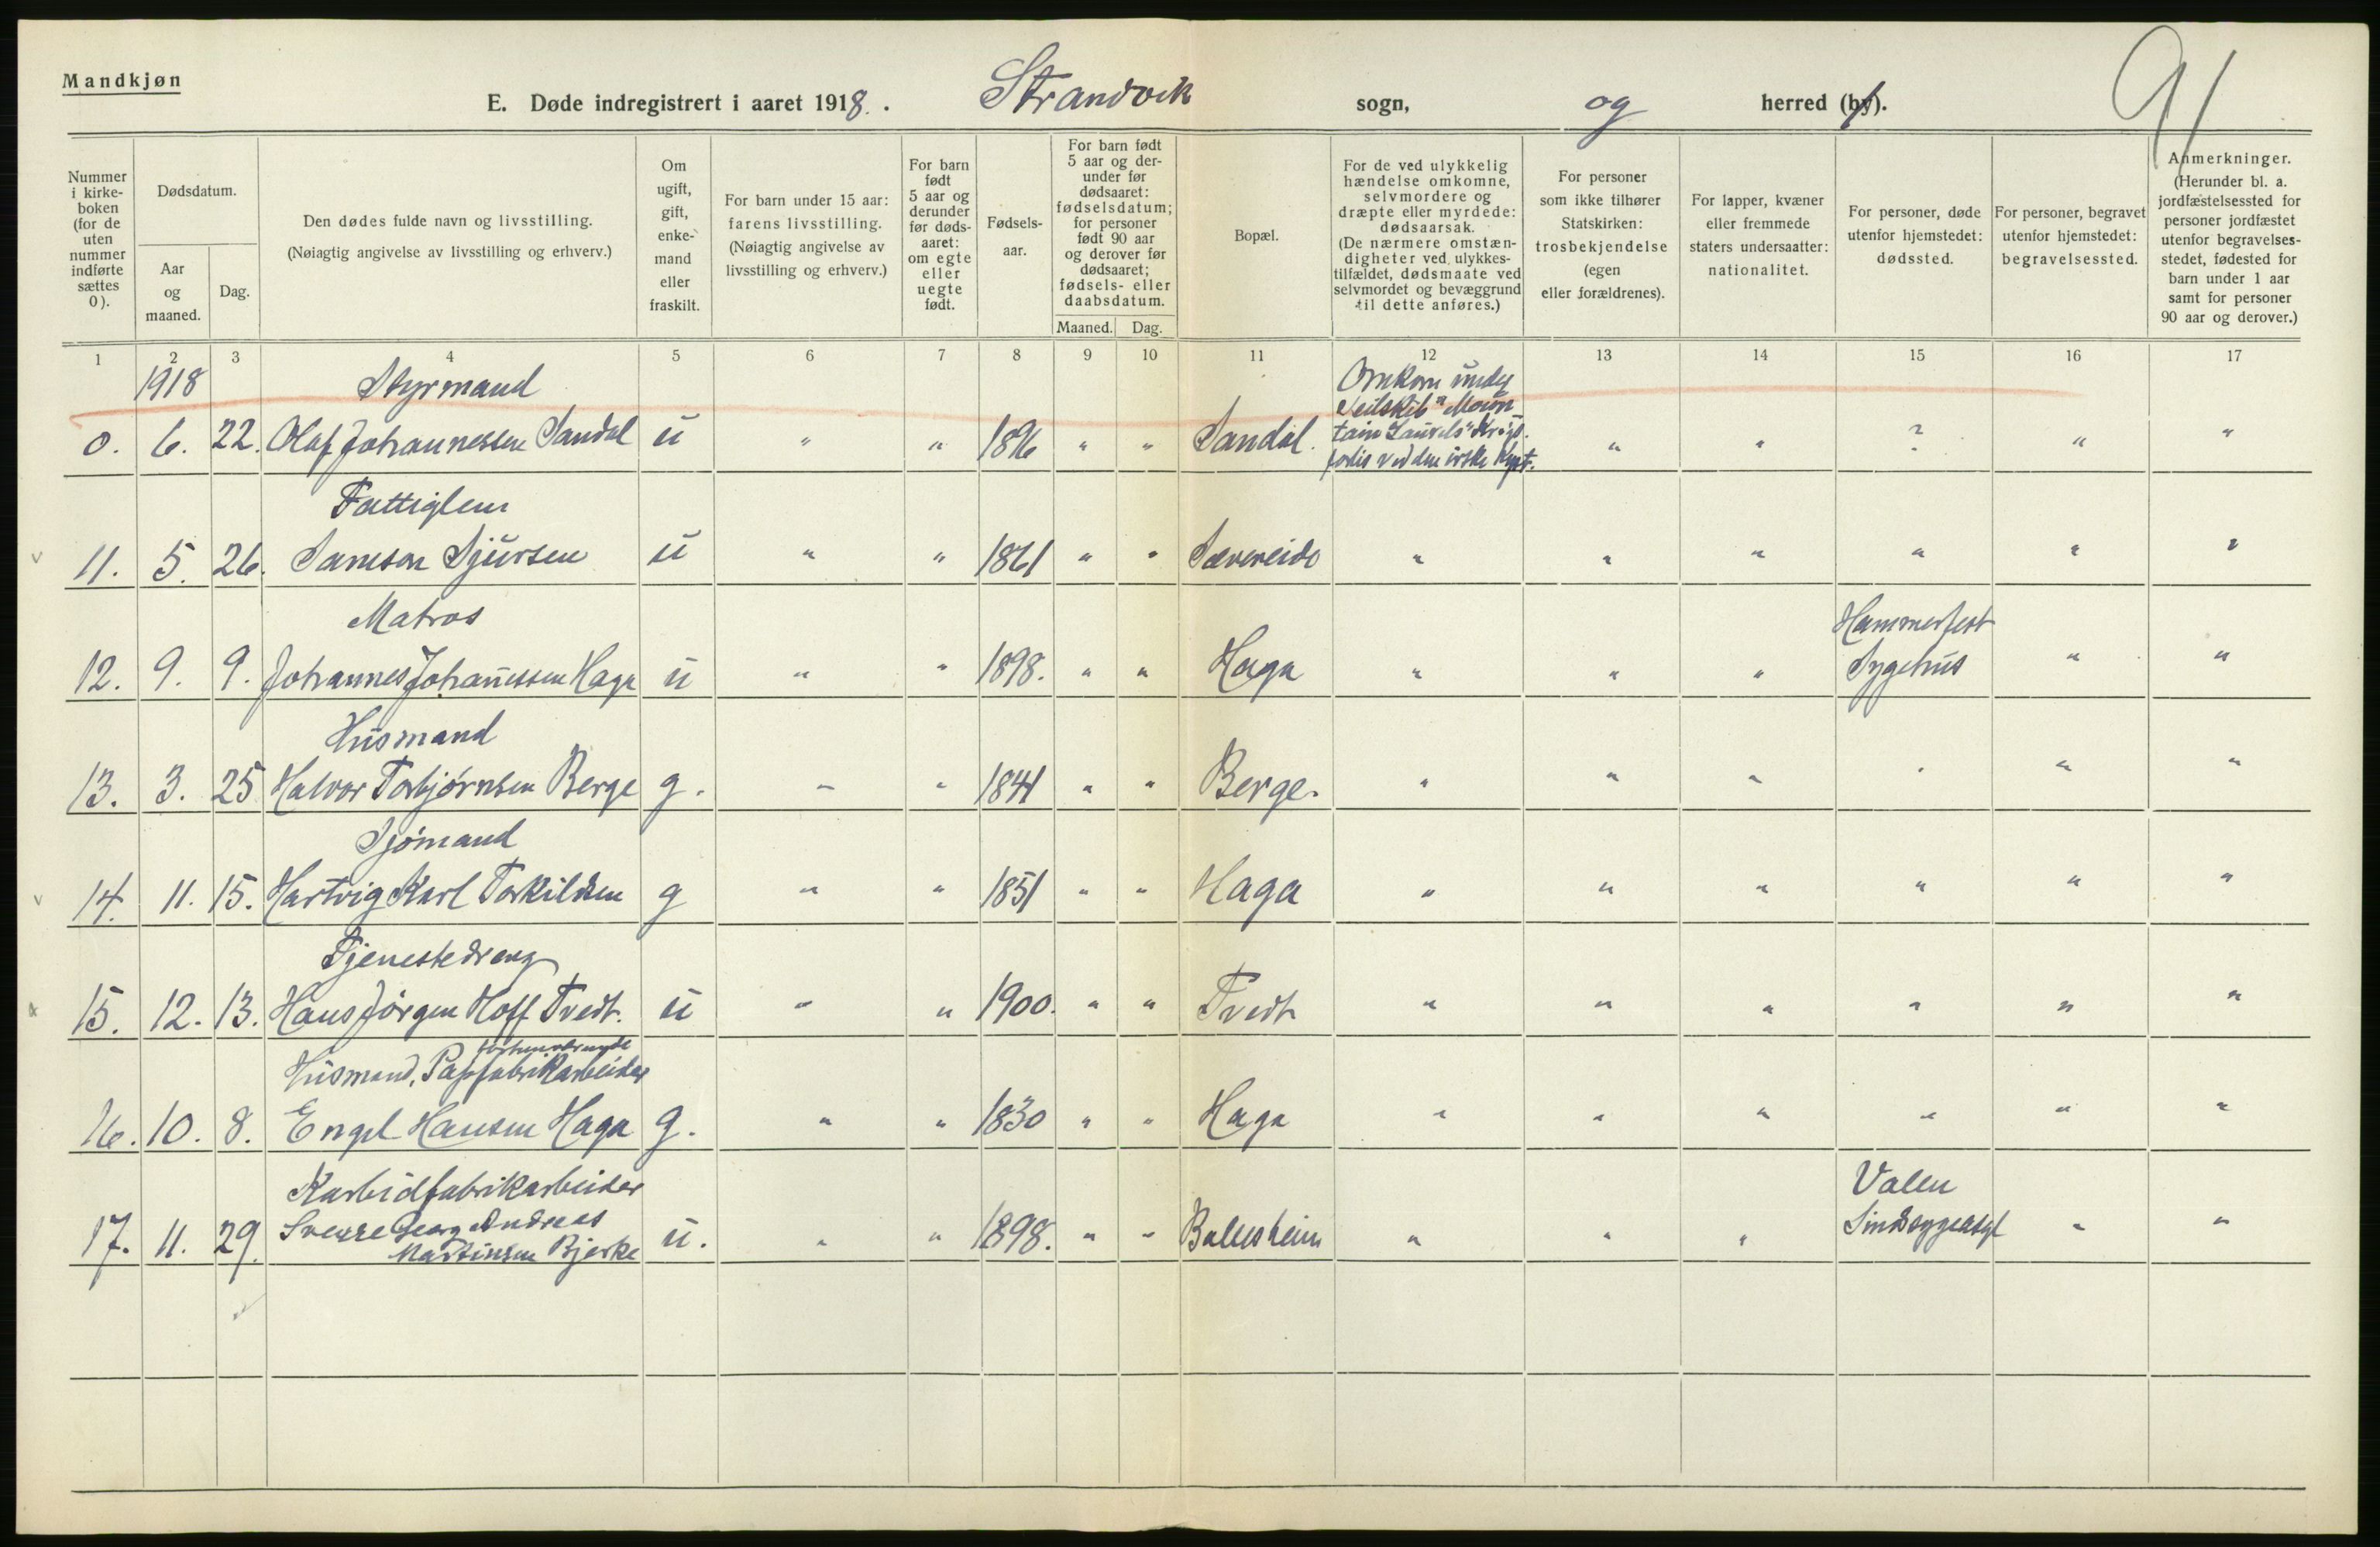 Mandkjøn
E. Døde indregistrert i aaret 1918. Strandvik sogn, og herred (by).
91
Nummer i kirke-boken (for de uten nummer indførte sættes 0).
Dødsdatum.
Aar og maaned.
Dag.
Den dødes fulde navn og livsstilling.
(Nøiagtig angivelse av livsstilling og erhverv.)
Om ugift, gift, enke-mand eller fraskilt.
For barn under 15 aar: farens livsstilling.
(Nøiagtig angivelse av livsstilling og erhverv.)
For barn født 5 aar og derunder før døds-aaret: om egte eller uegte født.
Fødsels-aar.
For barn født 5 aar og der-under før dødsaaret: fødselsdatum; for personer født 90 aar og derover før dødsaaret; fødsels- eller daabsdatum.
Maaned. Dag.
Bopæl.
For de ved ulykkelig hændelse omkomne, selvmordere og dræpte eller myrdede: dødsaarsak.
(De nærmere omstæn-digheter ved ulykkes-tilfældet, dødsmaate ved selvmordet og bevæggrund til dette anføres.)
For personer som ikke tilhører Statskirken: trosbekjendelse (egen eller forældrenes).
For lapper, kvæner eller fremmede staters undersaatter: nationalitet.
For personer, døde utenfor hjemstedet: dødssted.
For personer, begravet utenfor hjemstedet: begravelsessted.
Anmerkninger.
(Herunder bl. a. jordfæstelsessted for personer jordfæstet utenfor begravelses-stedet, fødested for barn under 1 aar samt for personer 90 aar og derover.)
1 2 3 4 5 6 7 8 9 10 11 12 13 14 15 16 17
1918 Styrmand
Omkom under
Seilskib "Moun
tain Laurels"
ved den irske kyst.
0. 6. 22. Olaf Johannessen Sandal u " " 1896 " " Sandal. " " ? " "
Fattiglem
11. 5. 26. Samson Sjursen u " " 1861 " " Sævereide " " " " " "
Matros
12. 9. 9. Johannes Johannessen Haga u " " 1898. " " Haga " " " Hammerfest Sygehus " "
Husmand
13. 3. 25 Halvor Torbjørnsen Berge g. " " 1841 " " Berge. " " " " " "
Sjömand
14. 11. 15. Hartvig Karl Torkildsen g " " 1851 " " Haga " " " " " "
Tjenestedreng
15. 12. 13. Hans Jörgen Hoff Tvedt. u " " 1900. " " Tvedt " " " " " "
Husmand, Papfabrikarbeider
16. 10. 8. Engel Hansen Haga g. " " 1830 " " Haga " " " " " "
Karbidfabrikarbeider
17. 11. 29. Sverre Georg Andreas Martinsen Bjerke u. " " 1898. " " Ballesheim " " " Valen Sindssygeasyl " "